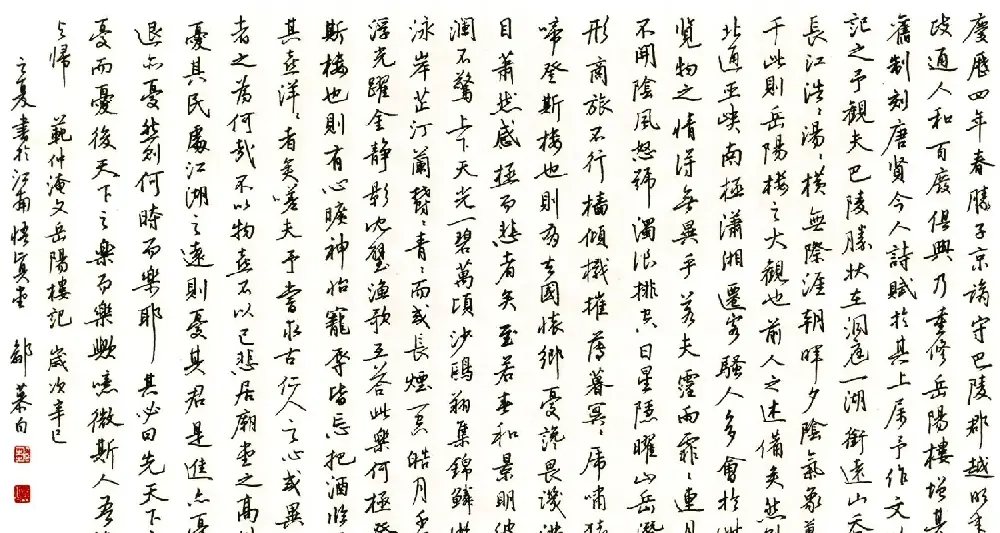 慶曆四年春滕子京謫守巴陵郡越明年
政通人和百廢俱興乃重修岳陽樓增其
舊制刻唐賢今人詩賦於其上屬予作文
記之予觀夫巴陵勝狀在洞庭一湖銜遠山吞
長江浩〻湯〻橫無際涯朝暉夕陰氣象萬
千此則岳陽樓之大觀也前人之述備矣然則
北通巫峽南極瀟湘遷客騷人多會於此
覽物之情得無異乎若夫霪雨霏〻連月
不開陰風怒號濁浪排空日星隱曜山岳潛
形商旅不行檣傾楫摧薄暮冥〻虎嘯猿
啼登斯樓也則有去國懷鄉憂讒畏譏滿
目蕭然感極而悲者矣至若春和景明波
瀾不驚上下天光一碧萬頃沙鷗翔集錦鱗游
泳岸芷汀蘭鬱〻青〻而或長煙一空皓月千
浮光躍金靜影沈璧漁歌互答此樂何極登
斯樓也則有心曠神怡寵辱皆忘把酒臨
其喜洋〻者矣嗟夫予嘗求古仁人之心或異
者之為何哉不以物喜不以己悲居廟堂之高則
憂其民處江湖之遠則憂其君是進亦憂
退亦憂然則何時而樂耶其必曰先天下之
憂而憂後天下之樂而樂歟噫微斯人吾
與歸 範仲淹文岳陽樓記 歲次辛巳
之夏書於江南悟真堂 鄒慕白